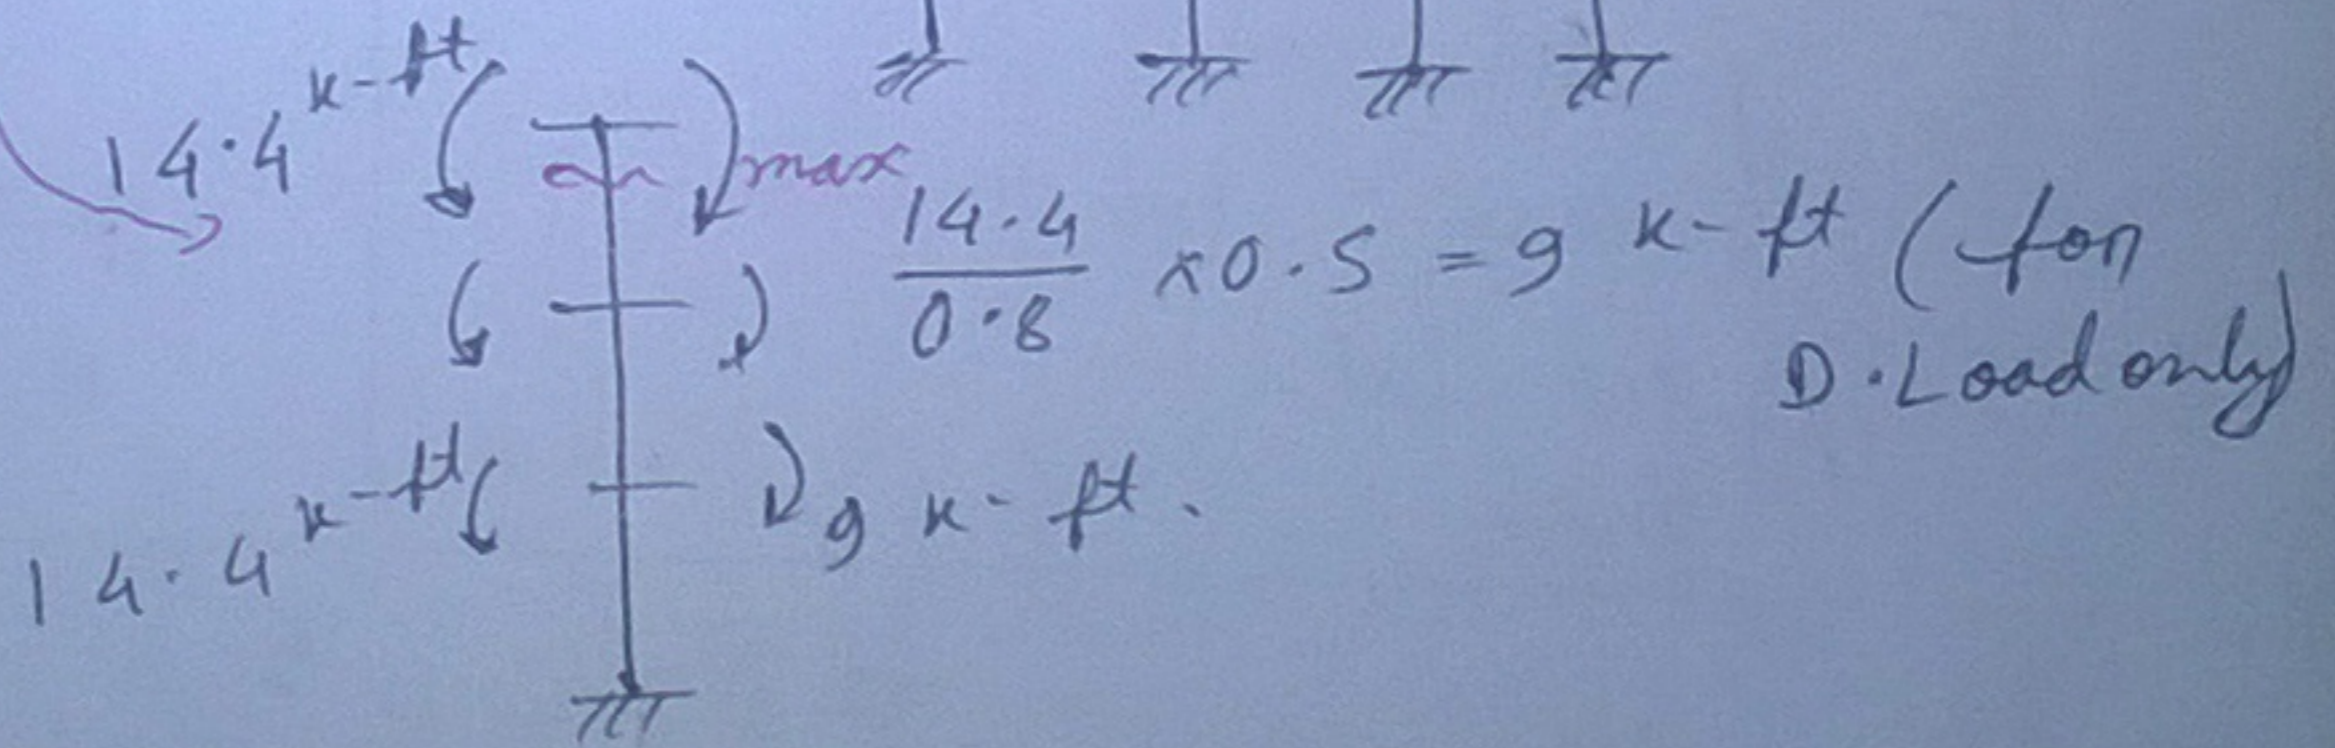 14.4 k-ft
max
14.4/0.8 x0.5 = 9 k-ft (for
D.Load only)
14.4 k-ft
9 k-ft.